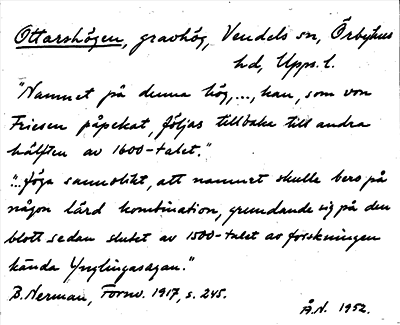 Ottarshögen, gravhög, Vendels sn, Örbyhus
hd, Upps. l.
"Namnet på denna hög, ..., kan, som von
Friesen påpekat, följas tillbaka till andra
hälften av 1600-talet."
"...föga sannolikt, att namnet skulle bero på
någon lärd kombination, grundande sig på den
blott sedan slutet av 1500-talet av forskningen
kända Ynglingasagan."
B. Nerman, Fornv. 1917, s. 245.
Å.N. 1952.